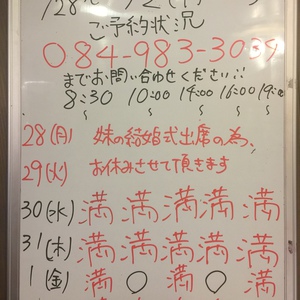 ご予約状況
084-983-3039
までお問い合わせください
8:30 10:00 14:00 16:00 19:00
28(月) 妹の結婚式出席の為、
29(火) お休みさせて頂きます
30(水) 満 満 満 満 満
31(木) 満 満 満 満 満
1(金) 満 ○ 満 ○ 満